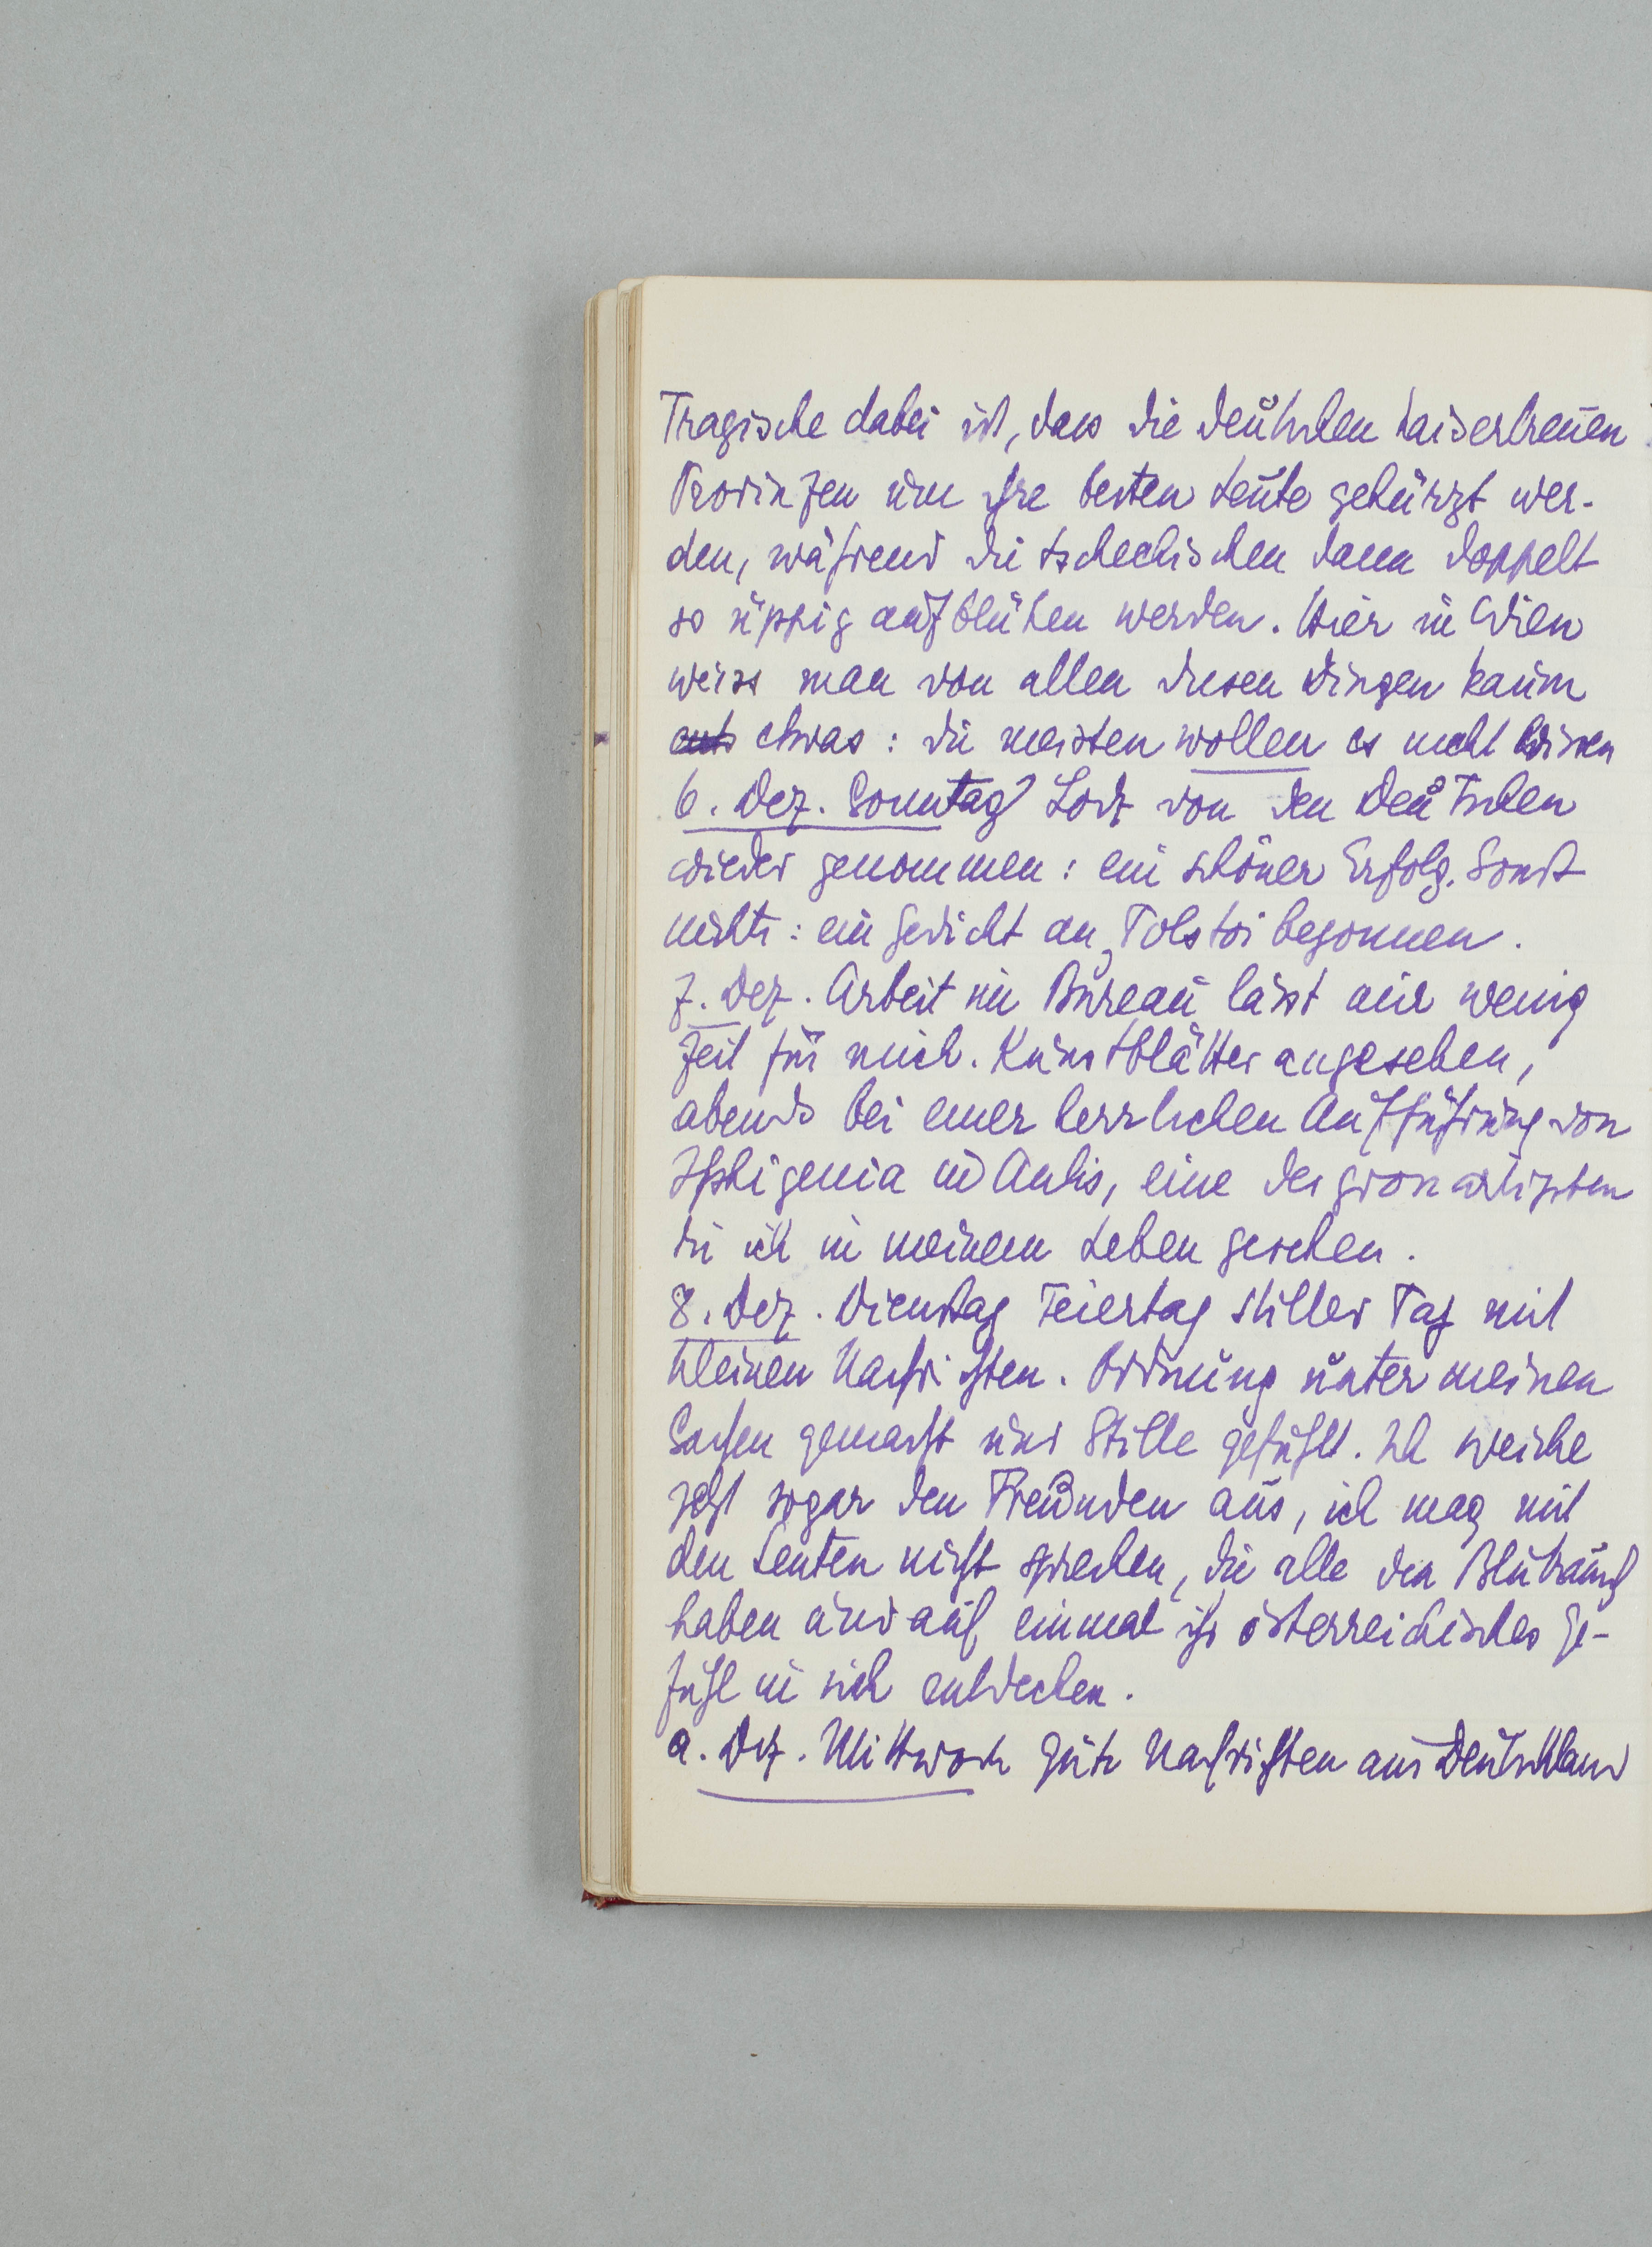 Tragische dabei ist, dass die deutschen kaisertreuen
Provinzen um ihre besten Leute gekürzt wer-
den, während die tschechischen dann doppelt
so üppig aufblühen werden. Hier in Wien
weiss man von allen diesen Dingen kaum
etwas: die meisten wollen es nicht wissen
6. Dez. Sonntag Lodz von den Deutschen
wieder genommen: ein schöner Erfolg. Sonst
nichts: ein Gedicht an Tolstoi begonnen.
7. Dez. Arbeit im Bureau lässt mir wenig
Zeit für mich. Kunstblätter angesehen,
abends bei einer herrlichen Aufführung von
Iphigenia in Aulis, eine der grossartigsten
die ich in meinem Leben gesehen.
8. Dez. Dienstag Feiertag stiller Tag mit
kleinen Nachrichten. Ordnung unter meinen
Sachen gemacht und Stille gefühlt. Ich weiche
jetzt sogar den Freunden aus, ich mag mit
den Leuten nicht sprechen, die alle den Blutrausch
haben und auf einmal ihr österreichisches Ge-
fühl in sich entdecken.
9. Dez. Mittwoch Gute Nachrichten aus Deutschland